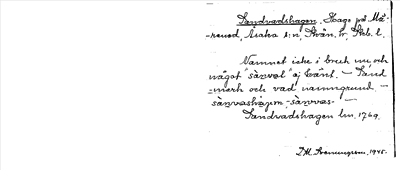 Sandvadshagen. Hage på Mä-
-rened, Asaka sn, Skån. hr, Skb. l.
Namnet icke i bruk nu, och
något "sànvał" ej känt. — Sand
-mark och vad, namngrund. —
sànvashàgen, -sànvas-
Sandvadshagen lm. 1769.
D.H. 1945.